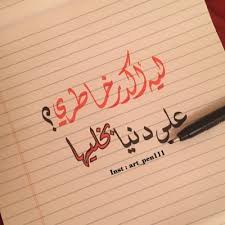 ليه أكدر خاطري؟
على دنيا بخليها
Inst : art_pen111